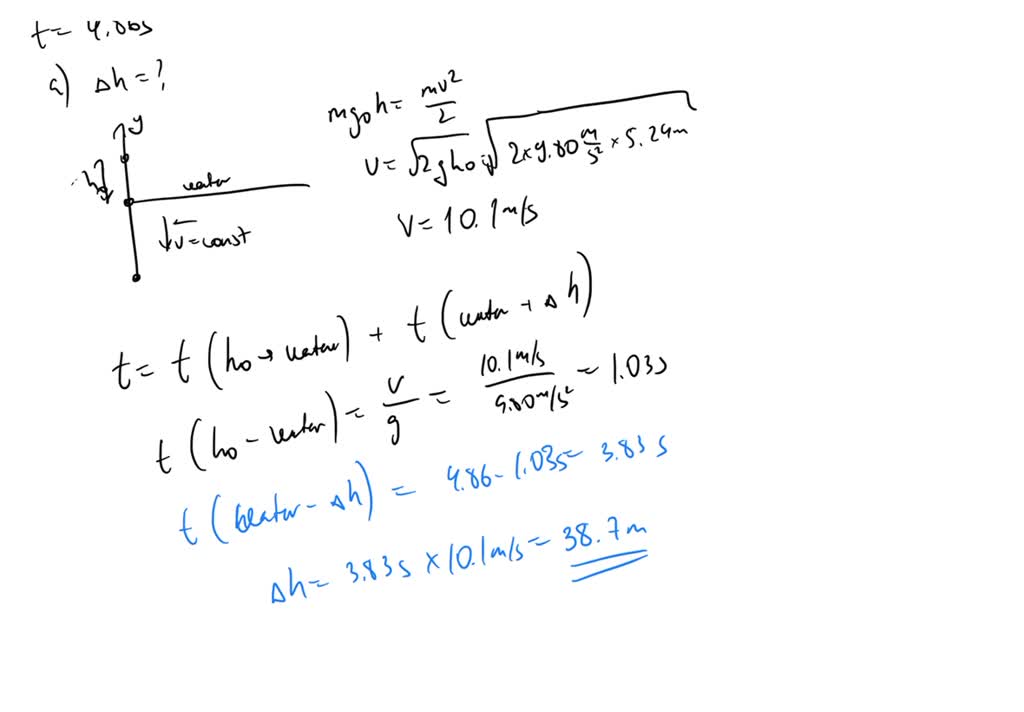 t = 4.86s
a) Δh = ?
y
water
v = const
mgh₀ = mv²/2
v = √2gh₀ = √2×9.80 m/s² × 5.24m
V = 10.1 m/s
t = t (h₀ → water) + t (water + Δh)
t (h₀ - water) = v/g = 10.1 m/s / 9.80 m/s² = 1.03s
t (water - Δh) = 4.86 - 1.03s = 3.83 s
Δh = 3.83 s × 10.1 m/s = 38.7 m